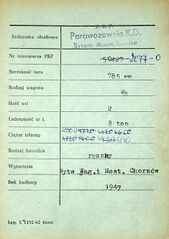 P.K.P.
Jednostka służbowa Parowozownia K.D.
Bytom Maciejkowice
Nr inwentarza PKP 2077-0
Szerokość toru 785 mm
Rodzaj wagonu
Ilość osi 2
Ładowność w t. 8 ton
Ciężar własny
Rodzaj hamulca ręczny
Wytwórnia Wytw.Wag.i Most. Chorzów
Rok budowy 1947